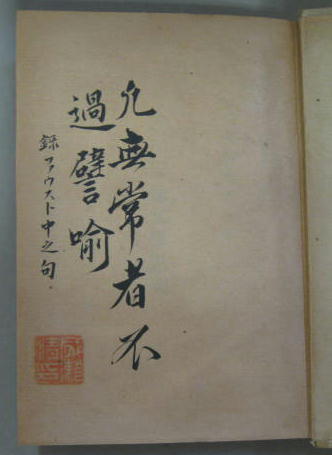 凡無常者不
過譬喻
録ファウスト中之句。